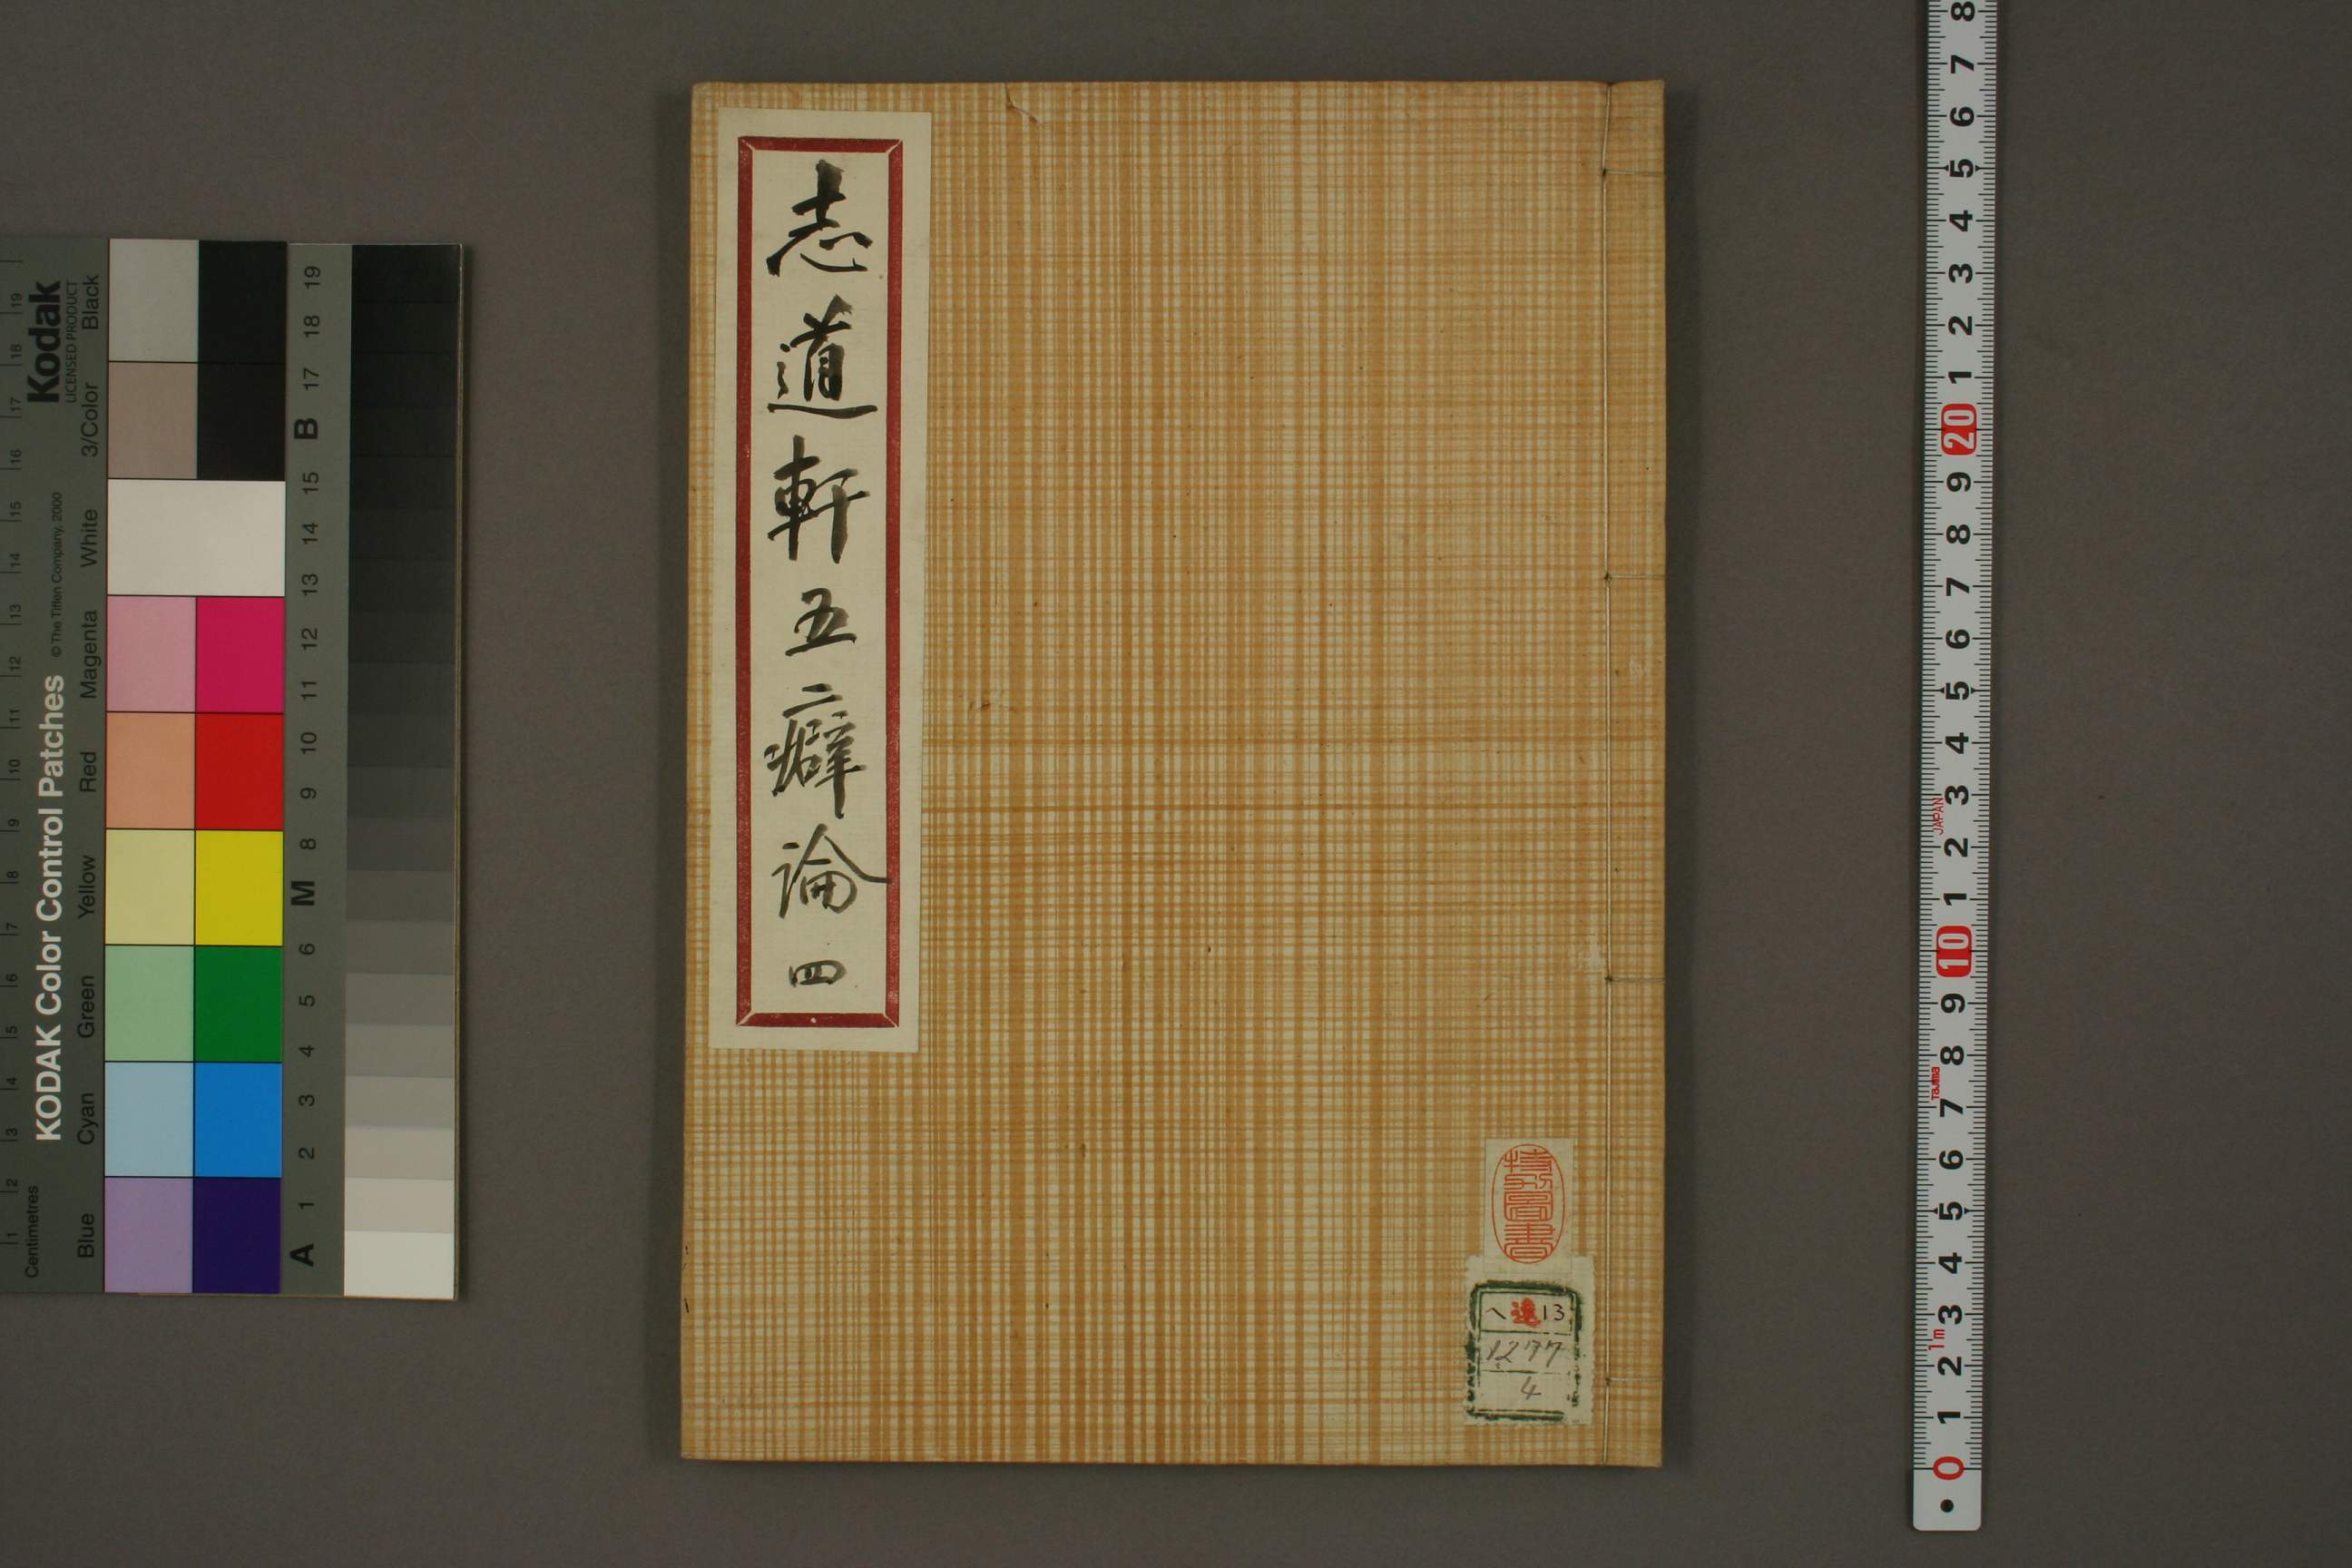 志道軒五癖論 四
特別圖書
ヘ 遇 13
1277
4
Kodak
LICENSED PRODUCT
KODAK Color Control Patches
© The Tiffen Company, 2000
Centimetres
Blue Cyan Green Yellow Red Magenta White 3/Color Black
1 2 3 4 5 6 7 8 9 10 11 12 13 14 15 16 17 18 19
A 1 2 3 4 5 6 M 8 9 10 11 12 13 14 15 B 17 18 19
8 7 6 5 4 3 2 1 20 9 8 7 6 5 4 3 2 1 10 9 8 7 6 5 4 3 2 1 0
JAPAN
Tajima
1m